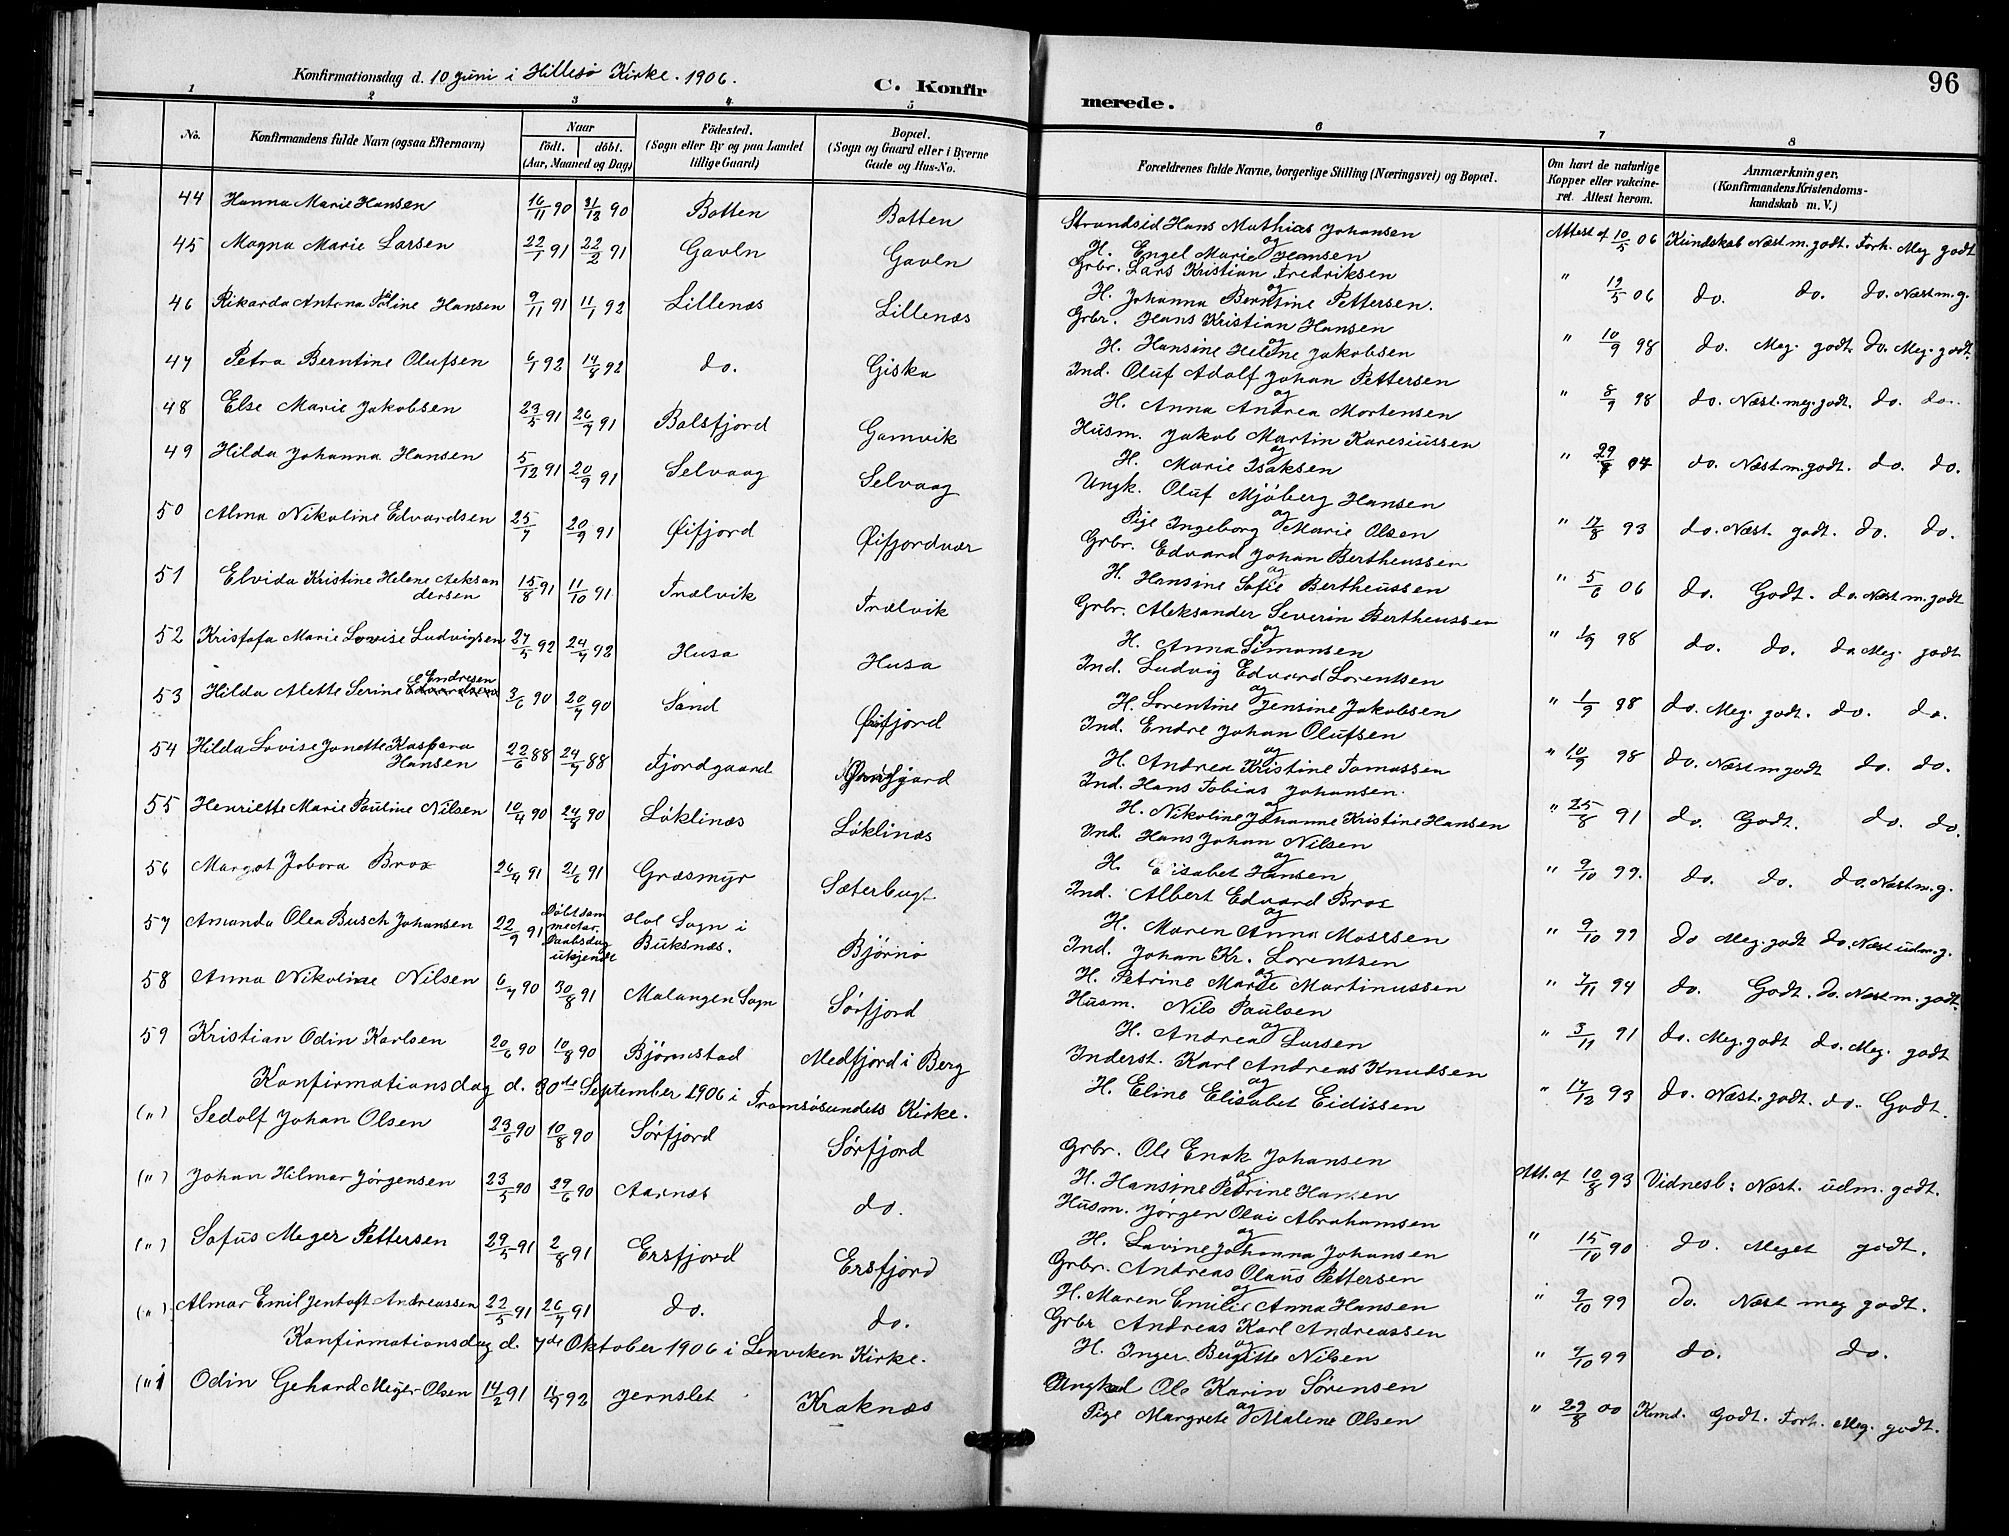 Konfirmationsdag d. 10 Juni i Hillesö Kirke. 1906.
C. Konfirmerede.
96
1 2 3 4 5 6 7 8
No.
Konfirmandens fulde Navn (ogsaa Efternavn)
Naar
födt. döbt.
(Aar, Maaned og Dag)
Födested.
(Sogn eller By og paa Landet
tillige Gaard)
Bopæl.
(Sogn og Gaard eller i Byerne
Gade og Hus-No.
Forældrenes fulde Navne, borgerlige Stilling (Næringsvei) og Bopæl.
Om havt de naturlige
Kopper eller vakcine-
ret. Attest herom.
Anmærkninger.
(Konfirmandens Kristendoms-
kundskab m. V.)
44 Hanna Marie Hansen 16/11 90 31/12 90 Botten Botten Strandsid Hans Mathias Johansen
og
H. Engel Marie Hansen Attest af 10/5 06 Kundskab Næst m. godt. Forh. Meg godt
45 Magna Marie Larsen 22/1 91 22/2 91 Gavln Gavln Grbr. Lars Kristian Fredriksen
og
H. Johanna Berntine Pettersen. " 19/5 06 do. do. do. Næst m. g.
46 Rikarda Antona Paline Hansen 9/11 91 11/1 92 Lillenæs Lillenæs Grbr. Hans Kristian Hansen
og
H. Hansine Helene Jakobsen " 10/9 98 do. Meg. godt. do. Meg. godt.
47 Petra Berntine Olufsen 6/1 92 14/8 92 do. Giska Ind. Oluf Adolf Johan Pettersen
og
H. Anna Andrea Mortensen " 8/9 98 do. Næst. meg. godt. do. do.
48 Else Marie Jakobsen 23/5 91 26/7 91 Balsfjord Gamvik Husm. Jakob Martin Karesiussen
og
H. Marie Isaksen " 29/9 97 do. Næst m. godt. do. do.
49 Hilda Johanna Hansen 5/12 91 20/9 91 Selvaag Selvaag Ungk. Oluf Mjöberg Hansen
og
Pige Ingeborg Marie Olsen " 17/8 93 do. Næst. godt. do. do.
50 Alma Nikoline Edvardsen 25/7 20/9 91 Øifjord Øifjordvær Grbr. Edvard Johan Bertheussen
og
H. Hansine Sofie Bertheussen " 5/6 06 do. Godt. do. Næst m. godt
51 Elvida Kristine Helene Aleksan
dersen 15/8 91 11/10 91 Trælvik Trælvik Grbr. Aleksander Severin Bertheussen
og
H. Anna Simonsen " 1/9 98 do. do. do. Meg. godt
52 Kristofa Marie Lovise Ludvigsen 27/5 92 24/7 92 Husa Husa Ind. Ludvig Edvard Lorentsen
og
H. Lorentine Jensine Jakobsen " 1/9 98 do. Meg. godt. do. do.
53 Hilda Alette Serine Endresen 3/6 90 20/7 90 Sand Øifjord Ind. Endre Johan Olufsen
og
H. Andrea Kristine Tomassen " 10/9 98 do. Næst m godt do. do.
54 Hilda Lovise Jonette Kaspara
Hansen 22/6 88 24/7 88 Fjordgaard Ind. Hans Tobias Johansen.
og
H. Nikoline Johanne Kristine Hansen " 25/8 91 do. Godt. do. do.
55 Henriette Marie Pauline Nilsen 10/4 90 24/8 90 Löklinæs Löklinæs Ind. Hans Johan Nilsen
og
H. Elisabet Hansen " 9/10 99. do. do. do. Næst m. g.
56 Margot Jobora Brox 26/4 91 21/6 91 Græsmyr Sæterbugt Ind. Albert Edvard Brox
og
H. Maren Anna Mosesen " 9/10 99 do Meg. godt do. Næst udm. g.
57 Amanda Olea Busch Johansen 22/9 91 Döbt sam
me Aar.
Daabsdag
ukjendt Hol Sogn i
Buksnæs. Bjørnö Ind. Johan Kr. Lorentsen
og
H. Petrine Marie Martinussen " 7/11 94 do. Godt. do. Næst m. godt.
58 Anna Nikoline Nilsen 6/7 90 30/8 91 Malangen Sogn Sørfjord Husm. Nils Paulsen
og
H. Andrea Larsen " 3/11 91 do. Meg. godt do. Meg. godt
59 Kristian Odin Karlsen 20/6 90 10/8 90 Bjørnstad Medfjord i Berg Inderst. Karl Andreas Knudsen
og
H. Eline Elisabet Eidissen " 17/12 93 do. Næst. godt. do. Godt.
Konfirmationsdag d. 30te September 1906 i Tromsøsundets Kirke.
(") Sedolf Johan Olsen 23/6 90 10/8 90 Sørfjord Sørfjord Grbr. Ole Enok Johansen
og
H. Hansine Petrine Hansen Att. af 10/8 93 Vidnesb: Næst. udm. godt.
(") Johan Hilmar Jørgensen 23/5 90 29/6 90 Aarnes do. Husm. Jørgen Olai Abrahamsen
og
H. Lavine Johanna Johansen " 15/10 90 do. Meget godt.
(") Sofus Meyer Pettersen 29/5 91 2/8 91 Ersfjord Ersfjord Grbr. Andreas Olaus Pettersen
og
H. Maren Emilie Anna Hansen " 9/10 99 do. Næst meg godt.
(") Almar Emil Jentoft Andreassen 22/5 91 26/7 91 do. do. Grbr Andreas Karl Andreassen
og
H. Inger Bergitte Nilsen " 9/10 99 do. do.
Konfirmationsdag d. 7de Oktober 1906 i Lenviken Kirke.
(") Odin Gehard Meyer Olsen 14/2 91 92 Jernslet Kraknæs Ungkarl Ole Karin Sørensen
og
Pige Margrete Malene Olsen " 29/8 00 Kund. Godt. Forh. Meg. godt.